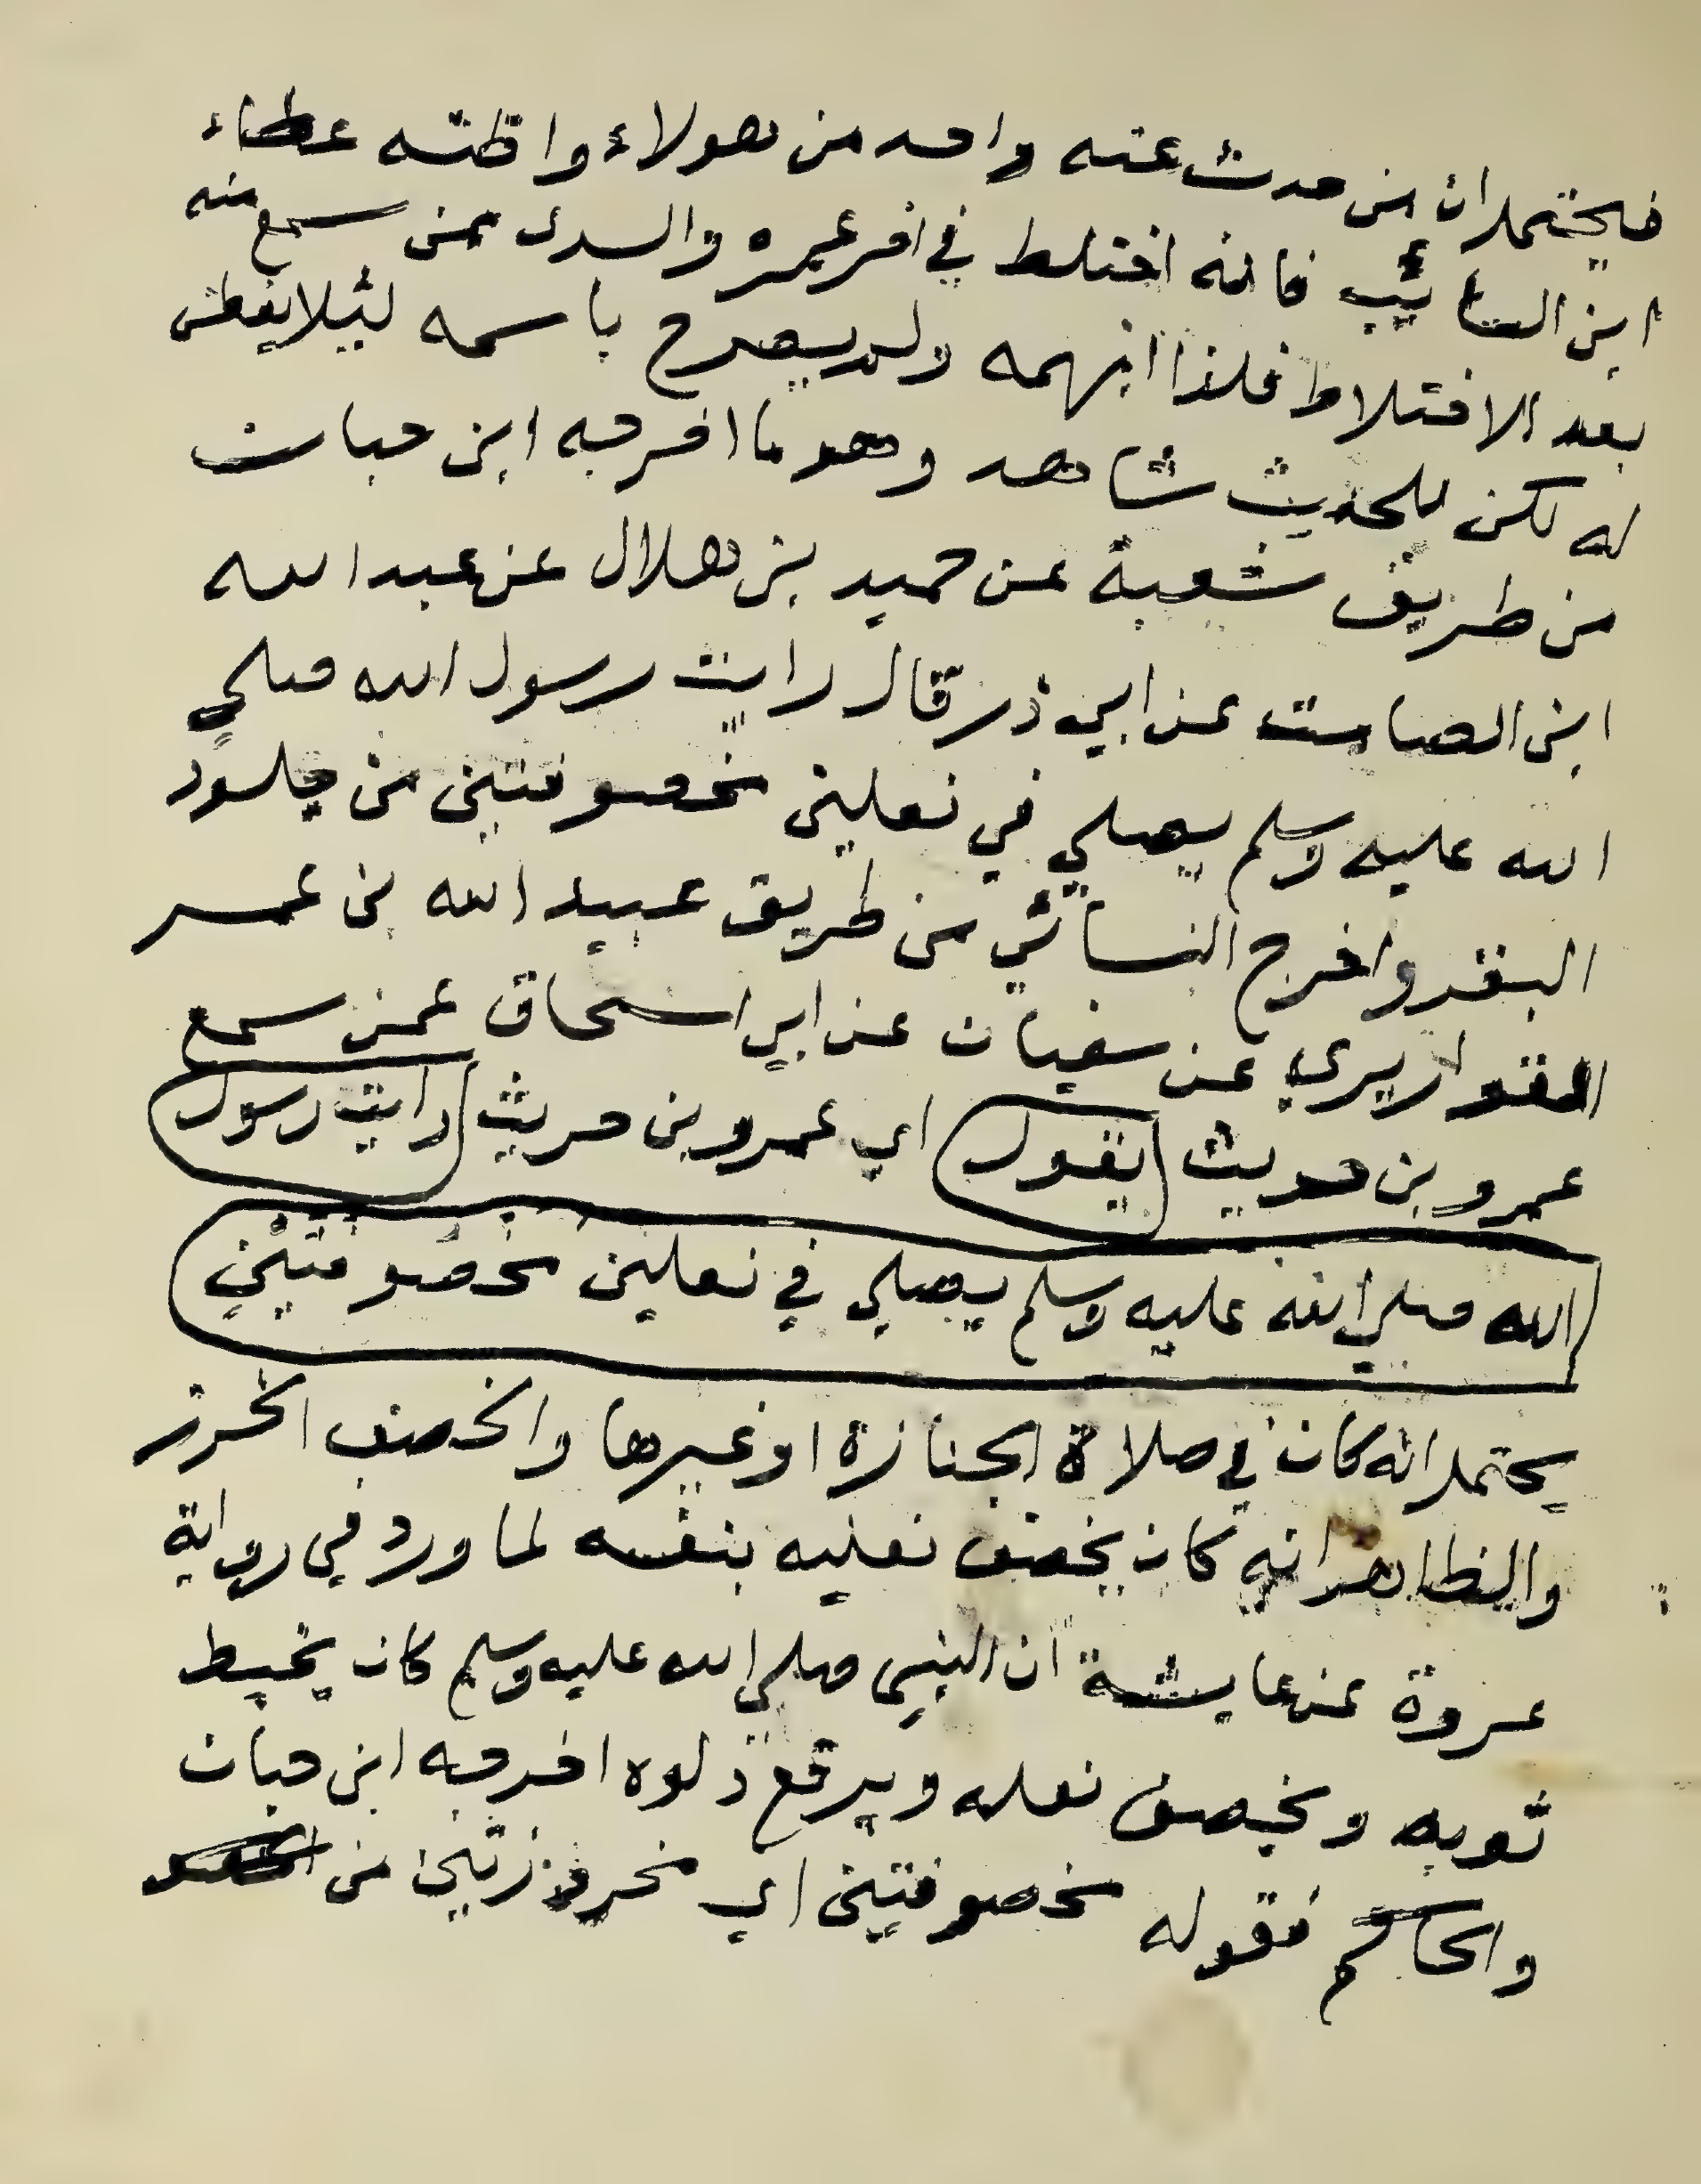 فيحتمل ان من حدث عنه واحد من هولاء واظنه عطاء
ابن السائيب فانه اختلط في اخر عمره والسدى ممن سمع منه
بعد الاختلاط فلذا ابهمه ولم يصرح باسمه ليئلا يفطن
له لكن للحديث شاهد وهو ما اخرجه ابن حبان
من طريق شعبة عن حميد بن هلال عن عبد الله
ابن الصامت عن ابي ذر قال رايت رسول الله صلى
الله عليه وسلم يصلي في نعلين مخصوفتين من جلود
البقر واخرج النسائي من طريق عبيد الله بن عمر
القواريري عن سفيان عن ابي اسحاق عمن سمع
عمرو بن حريث يقول اي عمرو بن حريث رايت رسول
الله صلى الله عليه وسلم يصلي في نعلين مخصوفتين
يحتمل انه كان في صلاة الجنازة او غيرها والخصف الخرز
والظاهر انه كان يخصف نعليه بنفسه لما ورد في رواية
عروة عن عايشة ان النبي صلى الله عليه وسلم كان يخيط
ثوبه ويخصف نعله ويرقع دلوه اخرجه ابن حبان
والحاكم فقوله مخصوفتين اي مخروزتين من